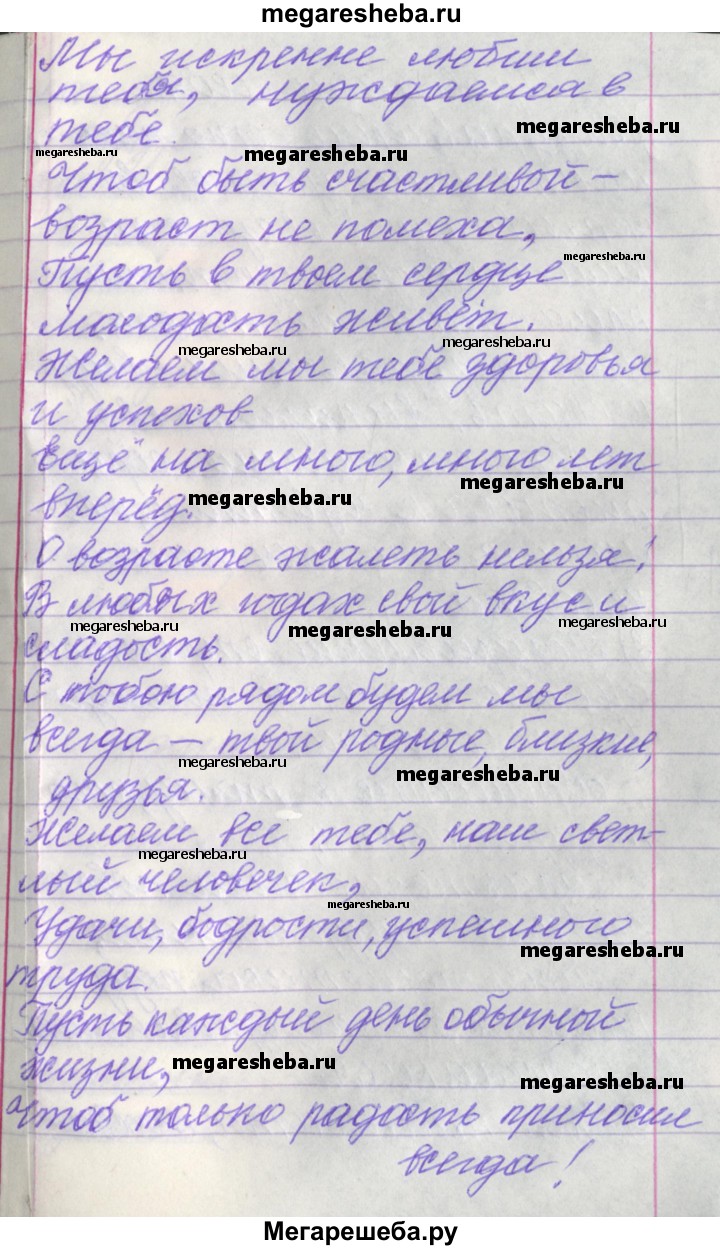 megaresheba.ru
Мы искренне любим
тебя, нуждаемся в
megaresheba.ru
тебе.
megaresheba.ru
megaresheba.ru
Чтоб быть счастливой –
возраст не помеха,
megaresheba.ru
Пусть в твоем сердце
молодость живёт.
megaresheba.ru
megaresheba.ru
Желаем мы тебе здоровья
и успехов
ещё на много, много лет
megaresheba.ru
вперёд.
megaresheba.ru
О возрасте жалеть нельзя!
В любых годах свой вкус и
megaresheba.ru
megaresheba.ru
megaresheba.ru
сладость.
С тобою рядом будем мы
всегда – твой родные, близкие,
megaresheba.ru
megaresheba.ru
друзья.
Желаем все тебе, наш свет-
megaresheba.ru
лый человечек,
megaresheba.ru
Удачи, бодрости, успешного
megaresheba.ru
труда.
Пусть каждый день обычной
жизни,
megaresheba.ru
megaresheba.ru
Чтоб только радость приносил
всегда!
Мегарешеба.ру